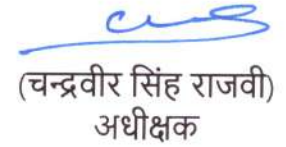 (चन्द्रवीर सिंह राजवी)
अधीक्षक